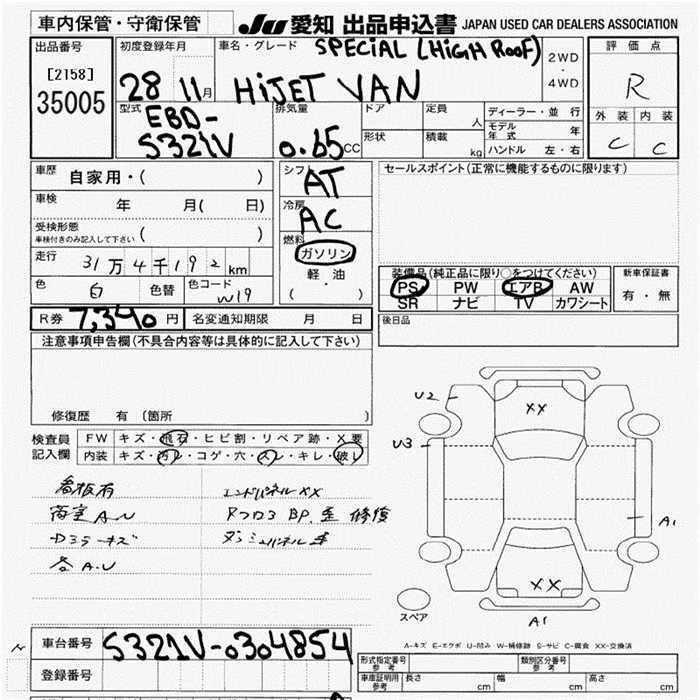 車内保管・守衛保管
JU 愛知 出品申込書 JAPAN USED CAR DEALERS ASSOCIATION
出品番号
[2158]
35005
初度登録年月
28 11月
車名・グレード
SPECIAL (HIGH ROOF)
HIJET VAN
2WD
・
4WD
評価点
R
外装 内装
C C
型式
EBD-
S321V
排気量
0.65 CC
ドア
形状
定員 人
積載 kg
ディーラー・並行
モデル年式 年
ハンドル 左・右
車歴 自家用・( )
車検 年 月( 日)
受検形態
車検付きのみ記入して下さい ( )
走行 31万4千192 km
色 白 色替 色コード W19
シフト AT
冷房 AC
燃料
ガソリン
軽油
( ・ )
セールスポイント(正常に機能するものに限ります)
装備品(純正品に限り○をつけてください)
PS PW エアB AW
SR ナビ TV カワシート
新車保証書
有・無
R券 7,340 円 名変通知期限 月 日
後日品
注意事項申告欄(不具合内容等は具体的に記入して下さい)
修復歴 有 (箇所 )
検査員記入欄
FW キズ・飛石・ヒビ割・リペア跡・X要
内装 キズ・汚レ・コゲ・穴・スレ・キレ・破レ
看板有
荷室 A.U
エンドパネル XX
修復
各 A.U
U2
U3
XX
XX
A1
A1
スペア
A-キズ E-エクボ U-凹み W-補修跡 S-サビ C-腐食 XX-交換済
車台番号 S321V-0304854
登録番号
型式指定番号 参考
類別区分番号 参考
車庫証明用 参考 長さ cm 幅 cm 高さ cm